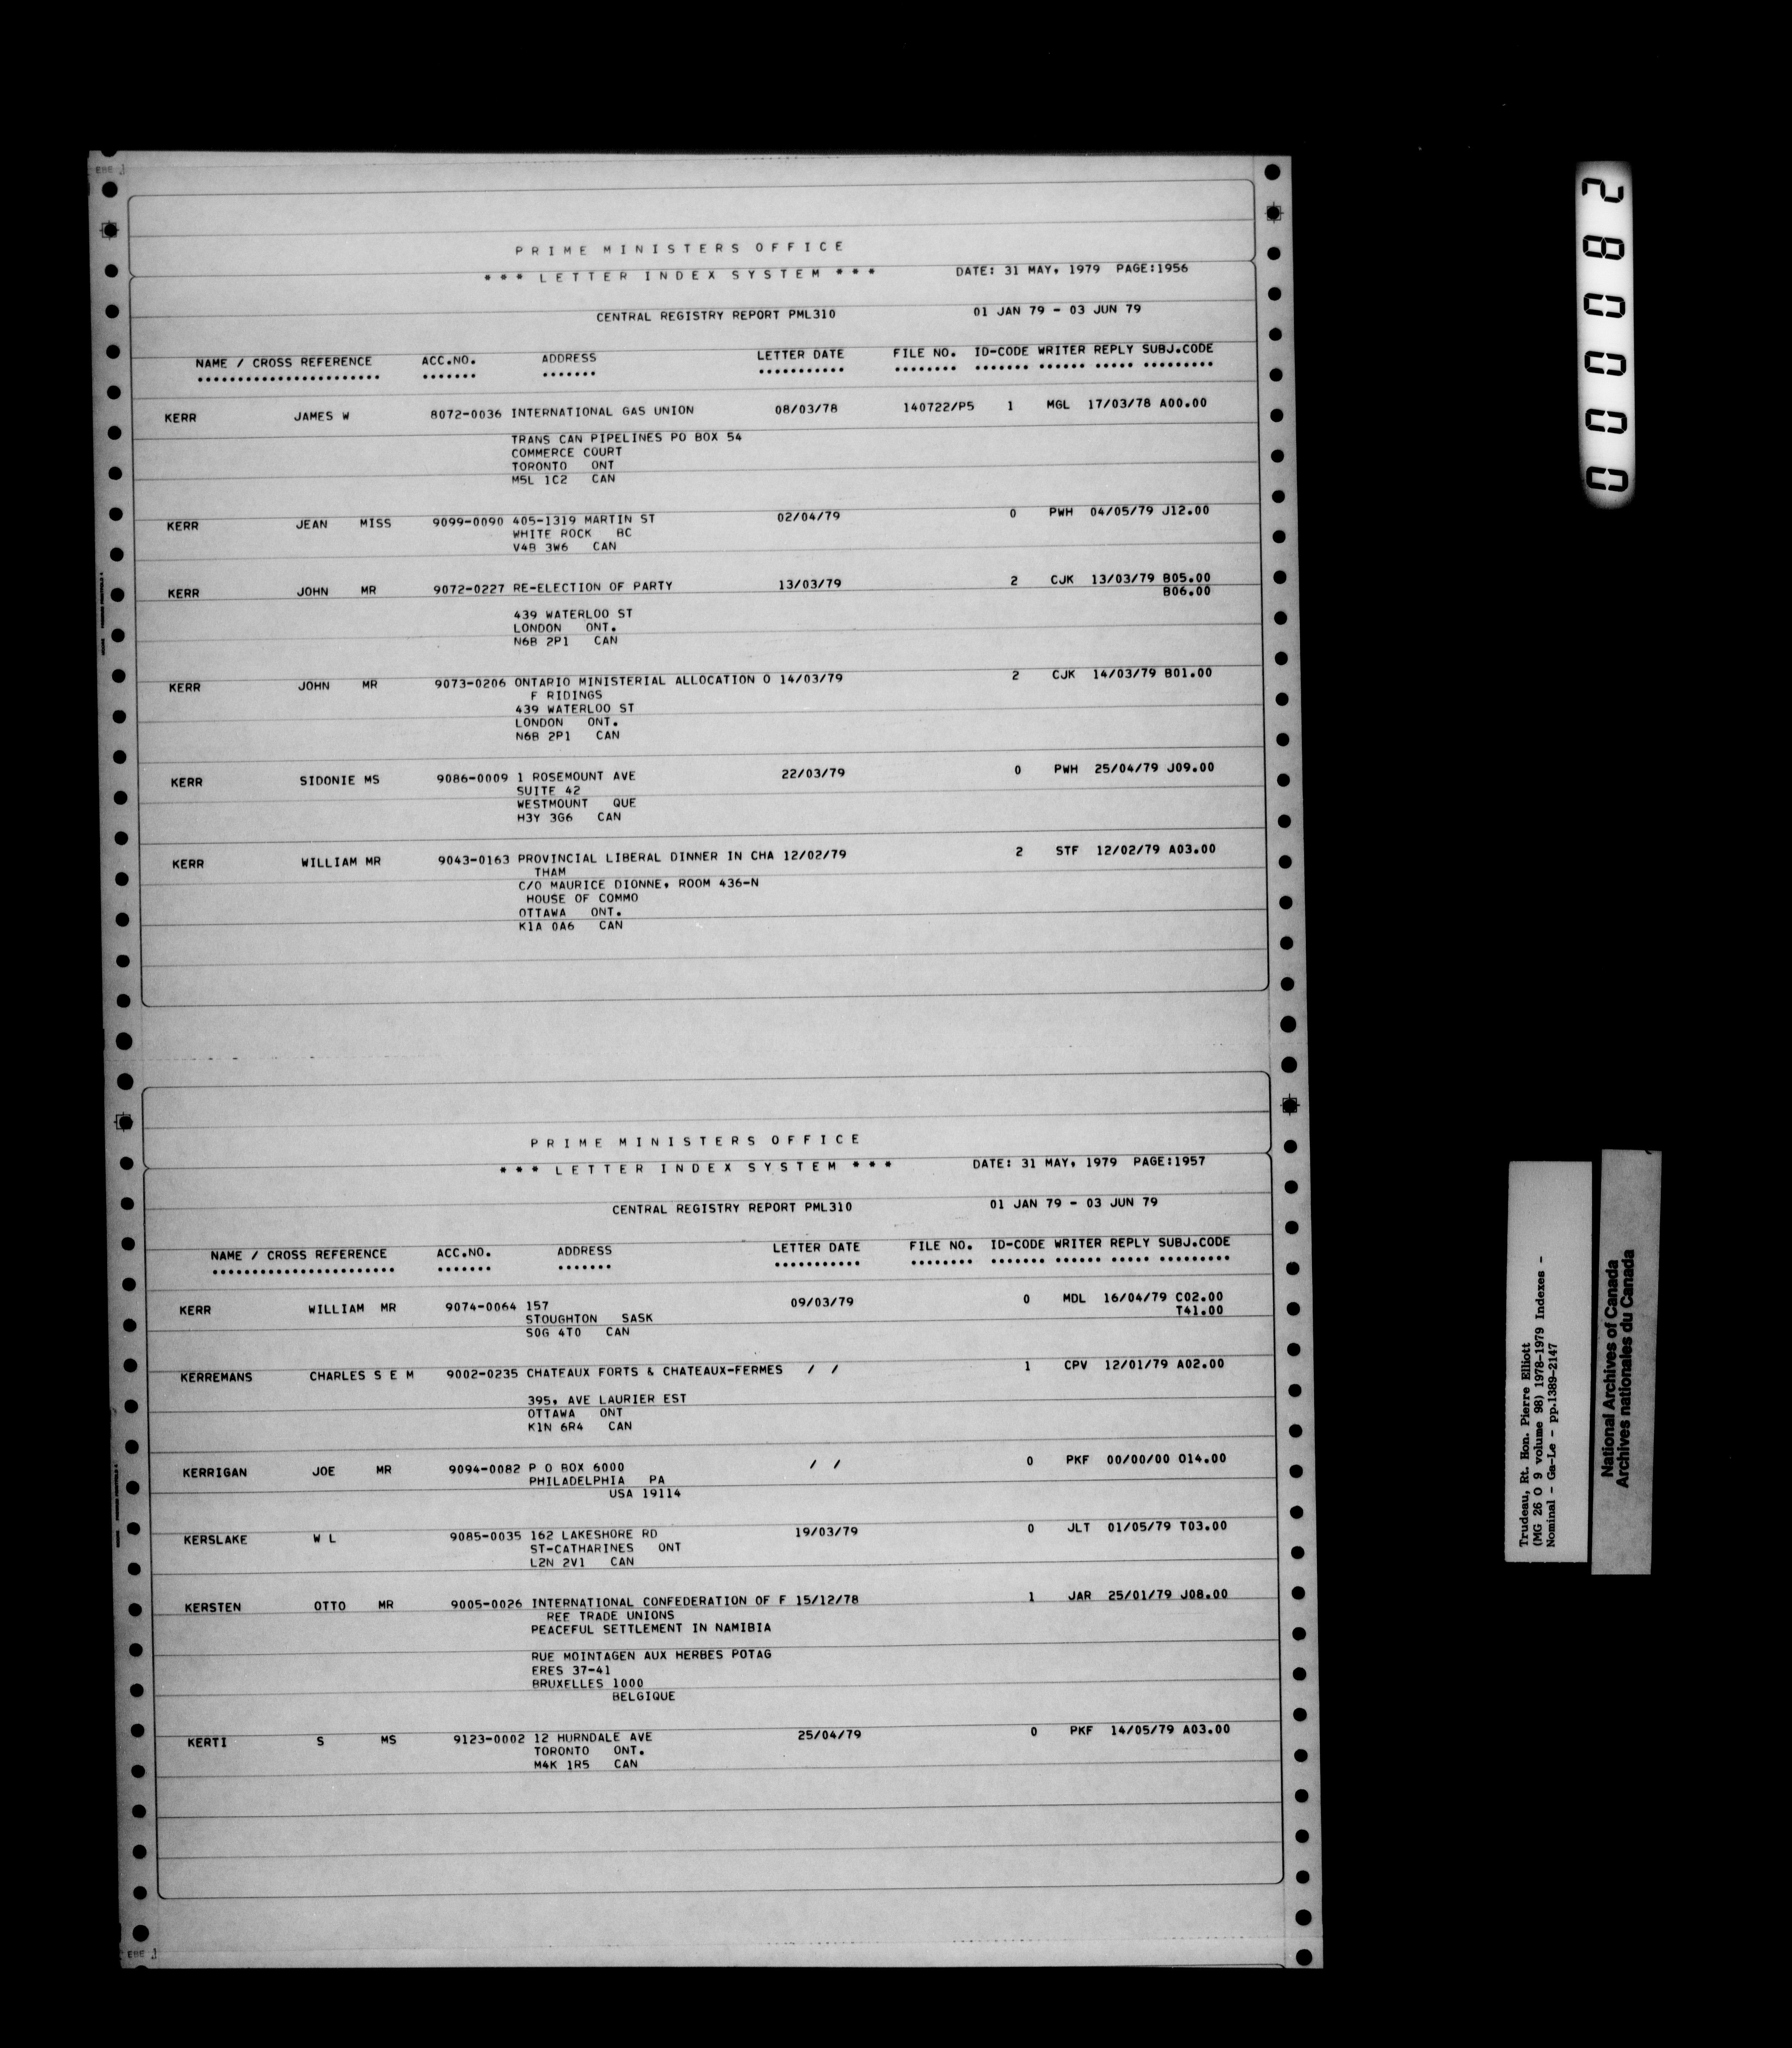 EBE
PRIME MINISTERS OFFICE
*** LETTER INDEX SYSTEM *** DATE: 31 MAY, 1979 PAGE:1956
CENTRAL REGISTRY REPORT PML310 01 JAN 79 - 03 JUN 79
NAME / CROSS REFERENCE ACC.NO. ADDRESS LETTER DATE FILE NO. ID-CODE WRITER REPLY SUBJ.CODE
KERR JAMES W 8072-0036 INTERNATIONAL GAS UNION 08/03/78 140722/P5 1 MGL 17/03/78 A00.00
TRANS CAN PIPELINES PO BOX 54
COMMERCE COURT
TORONTO ONT
M5L 1C2 CAN
KERR JEAN MISS 9099-0090 405-1319 MARTIN ST 02/04/79 0 PWH 04/05/79 J12.00
WHITE ROCK BC
V4B 3W6 CAN
KERR JOHN MR 9072-0227 RE-ELECTION OF PARTY 13/03/79 2 CJK 13/03/79 B05.00
B06.00
439 WATERLOO ST
LONDON ONT.
N6B 2P1 CAN
KERR JOHN MR 9073-0206 ONTARIO MINISTERIAL ALLOCATION O 14/03/79 2 CJK 14/03/79 B01.00
F RIDINGS
439 WATERLOO ST
LONDON ONT.
N6B 2P1 CAN
KERR SIDONIE MS 9086-0009 1 ROSEMOUNT AVE 22/03/79 0 PWH 25/04/79 J09.00
SUITE 42
WESTMOUNT QUE
H3Y 3G6 CAN
KERR WILLIAM MR 9043-0163 PROVINCIAL LIBERAL DINNER IN CHA 12/02/79 2 STF 12/02/79 A03.00
THAM
C/O MAURICE DIONNE, ROOM 436-N
HOUSE OF COMMO
OTTAWA ONT.
K1A 0A6 CAN
PRIME MINISTERS OFFICE
*** LETTER INDEX SYSTEM *** DATE: 31 MAY, 1979 PAGE:1957
CENTRAL REGISTRY REPORT PML310 01 JAN 79 - 03 JUN 79
NAME / CROSS REFERENCE ACC.NO. ADDRESS LETTER DATE FILE NO. ID-CODE WRITER REPLY SUBJ.CODE
KERR WILLIAM MR 9074-0064 157 09/03/79 0 MDL 16/04/79 C02.00
STOUGHTON SASK T41.00
S0G 4T0 CAN
KERREMANS CHARLES S E M 9002-0235 CHATEAUX FORTS & CHATEAUX-FERMES / / 1 CPV 12/01/79 A02.00
395, AVE LAURIER EST
OTTAWA ONT
K1N 6R4 CAN
KERRIGAN JOE MR 9094-0082 P O BOX 6000 / / 0 PKF 00/00/00 O14.00
PHILADELPHIA PA
USA 19114
KERSLAKE W L 9085-0035 162 LAKESHORE RD 19/03/79 0 JLT 01/05/79 T03.00
ST-CATHARINES ONT
L2N 2V1 CAN
KERSTEN OTTO MR 9005-0026 INTERNATIONAL CONFEDERATION OF F 15/12/78 1 JAR 25/01/79 J08.00
REE TRADE UNIONS
PEACEFUL SETTLEMENT IN NAMIBIA
RUE MOINTAGEN AUX HERBES POTAG
ERES 37-41
BRUXELLES 1000
BELGIQUE
KERTI S MS 9123-0002 12 HURNDALE AVE 25/04/79 0 PKF 14/05/79 A03.00
TORONTO ONT.
M4K 1R5 CAN
EBE
000082
Trudeau, Rt. Hon. Pierre Elliott
(MG 26 O 9 volume 98) 1978-1979 Indexes -
Nominal - Ga-Le - pp.1389-2147
National Archives of Canada
Archives nationales du Canada